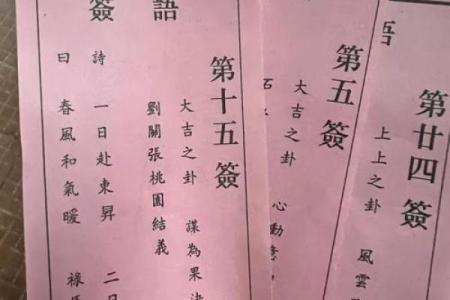 第廿四簽
上上之卦 風雲
語
第五簽
大吉之卦 心動
石
第十五簽
大吉之卦 謀為果決
劉關張桃園結義
詩 一日赴東昇 二日
曰 春風和氣暖 祿馬
語
簽